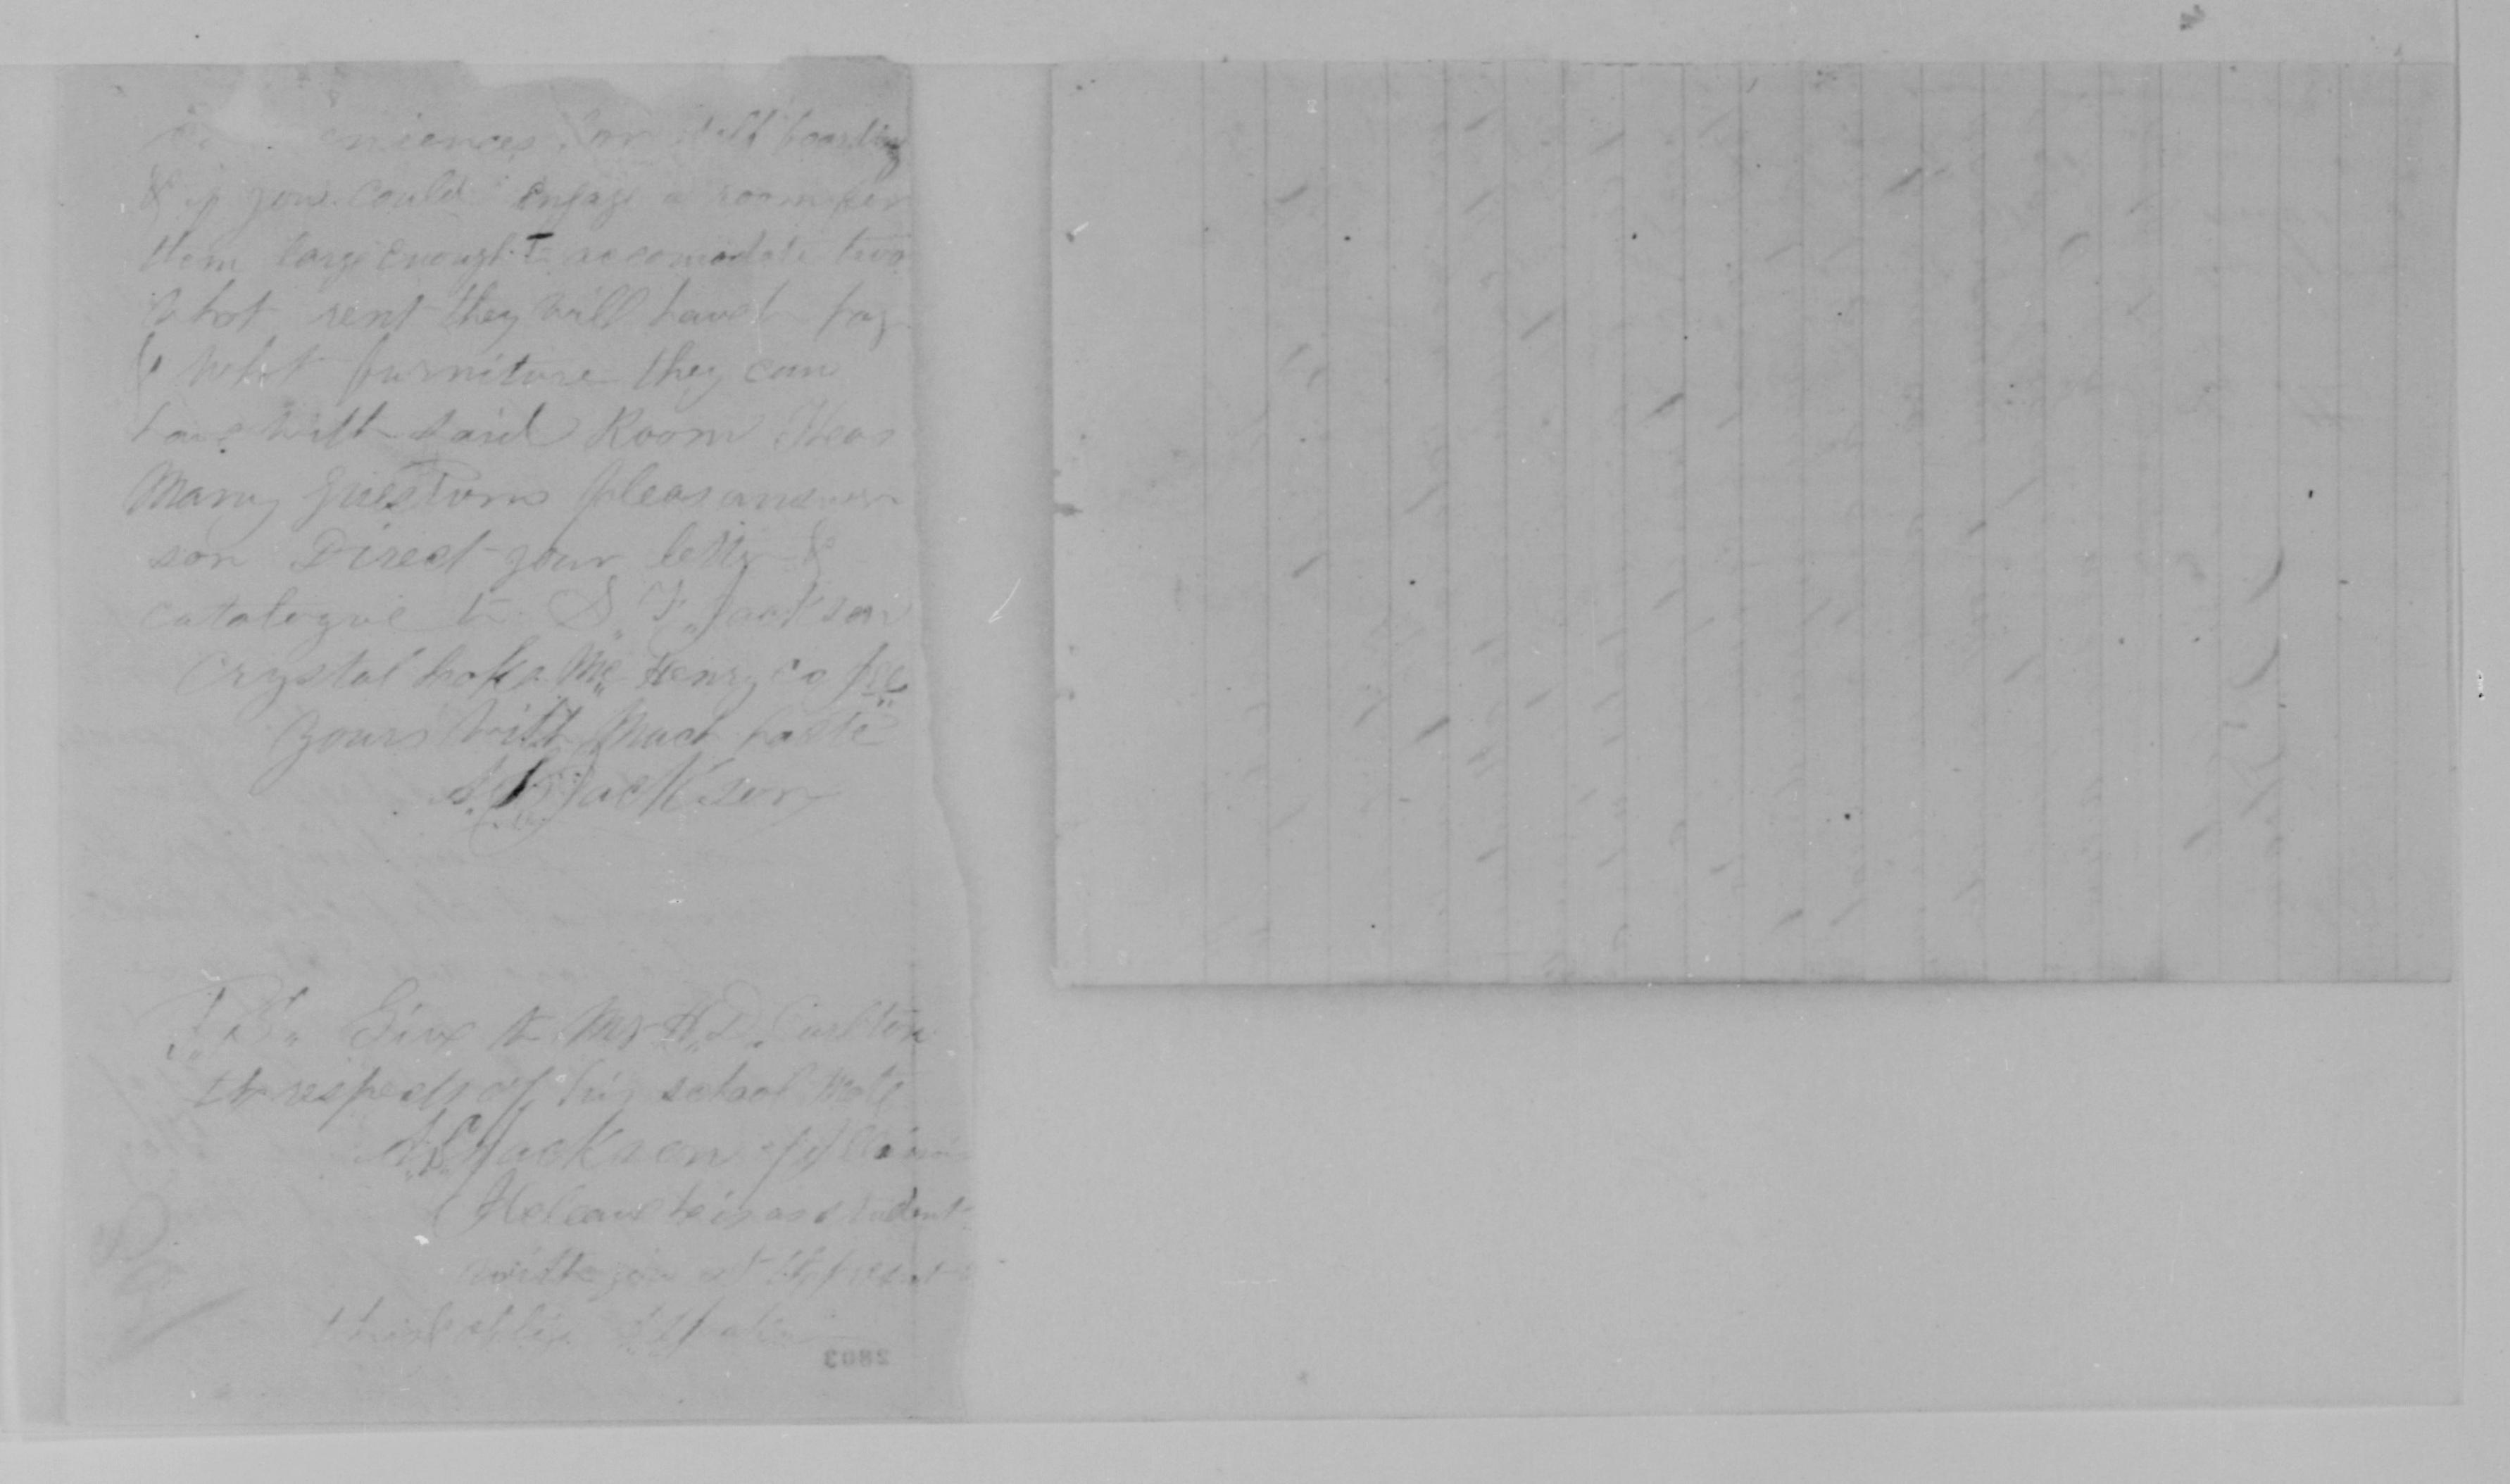 eniences for self boarding
& if you could engage a room for
them large enough to accomodate two
what rent they will have to pay
& what furniture they can
have with said Room Theas
Many Questions pleas answer
son Direct your letter &
catalogue to S. F. Jackson
Crystal Lake Mc Henry Co Ill
Yours With Much haste
Jackson
P.S. Give to Mr H. D. Carlton
the respects of his school mate
Jackson of Illinois
with you at the present
2803